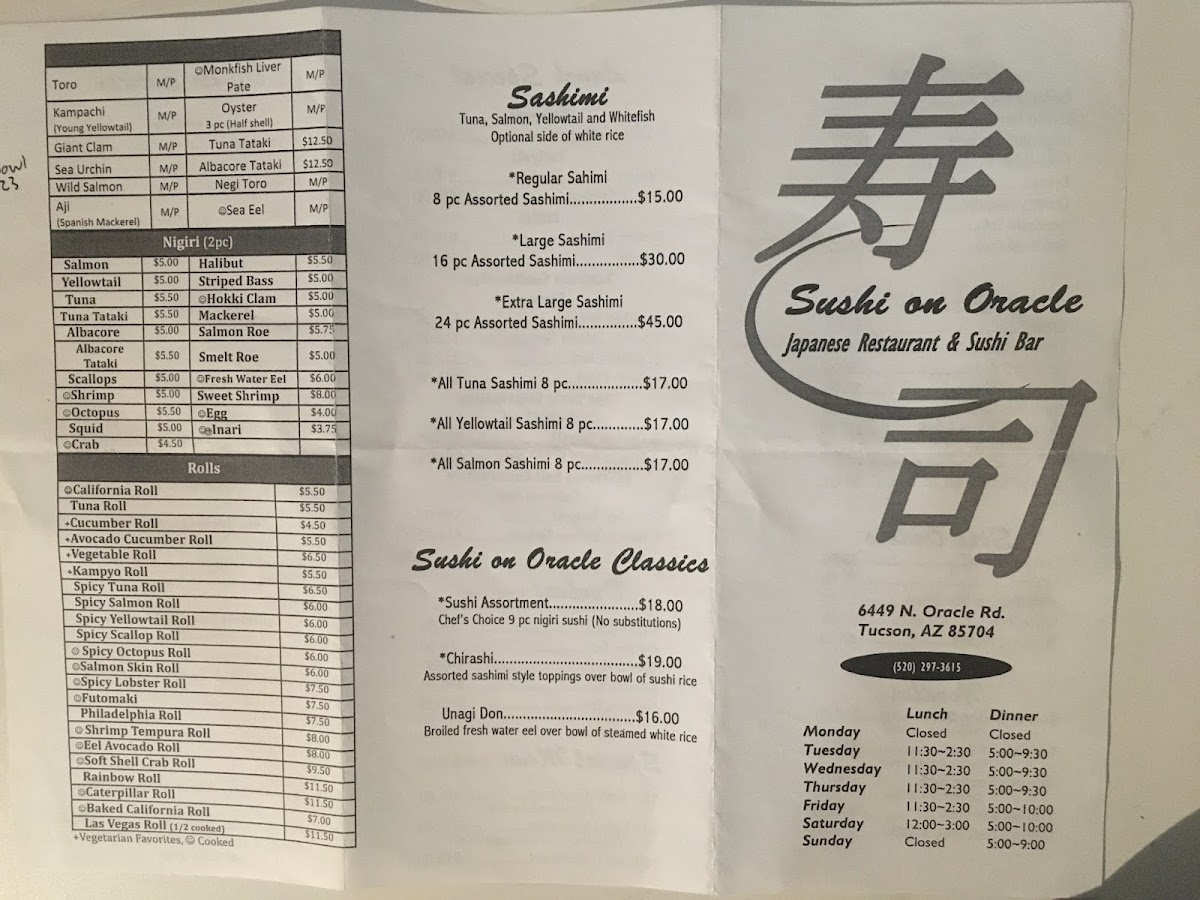 owl
23
Toro M/P ☺Monkfish Liver Pate M/P
Kampachi (Young Yellowtail) M/P Oyster 3 pc (Half shell) M/P
Giant Clam M/P Tuna Tataki $12.50
Sea Urchin M/P Albacore Tataki $12.50
Wild Salmon M/P Negi Toro M/P
Aji (Spanish Mackerel) M/P ☺Sea Eel M/P
Nigiri (2pc)
Salmon $5.00 Halibut $5.50
Yellowtail $5.00 Striped Bass $5.00
Tuna $5.50 ☺Hokki Clam $5.00
Tuna Tataki $5.50 Mackerel $5.00
Albacore $5.00 Salmon Roe $5.75
Albacore Tataki $5.50 Smelt Roe $5.00
Scallops $5.00 ☺Fresh Water Eel $6.00
☺Shrimp $5.00 Sweet Shrimp $8.00
☺Octopus $5.50 ☺Egg $4.00
Squid $5.00 ☺Inari $3.75
☺Crab $4.50
Rolls
☺California Roll $5.50
Tuna Roll $5.50
+Cucumber Roll $4.50
+Avocado Cucumber Roll $5.50
+Vegetable Roll $6.50
+Kampyo Roll $5.50
Spicy Tuna Roll $6.50
Spicy Salmon Roll $6.00
Spicy Yellowtail Roll $6.00
Spicy Scallop Roll $6.00
☺Spicy Octopus Roll $6.00
☺Salmon Skin Roll $6.00
☺Spicy Lobster Roll $7.50
☺Futomaki $7.50
Philadelphia Roll $7.50
☺Shrimp Tempura Roll $8.00
☺Eel Avocado Roll $8.00
☺Soft Shell Crab Roll $9.50
Rainbow Roll $11.50
☺Caterpillar Roll $11.50
☺Baked California Roll $7.00
Las Vegas Roll (1/2 cooked) $11.50
+Vegetarian Favorites, ☺ Cooked
Sashimi
Tuna, Salmon, Yellowtail and Whitefish
Optional side of white rice
*Regular Sahimi
8 pc Assorted Sashimi.................$15.00
*Large Sashimi
16 pc Assorted Sashimi...............$30.00
*Extra Large Sashimi
24 pc Assorted Sashimi..............$45.00
*All Tuna Sashimi 8 pc...................$17.00
*All Yellowtail Sashimi 8 pc.............$17.00
*All Salmon Sashimi 8 pc................$17.00
Sushi on Oracle Classics
*Sushi Assortment.......................$18.00
Chef's Choice 9 pc nigiri sushi (No substitutions)
*Chirashi.....................................$19.00
Assorted sashimi style toppings over bowl of sushi rice
Unagi Don..................................$16.00
Broiled fresh water eel over bowl of steamed white rice
寿
Sushi on Oracle
Japanese Restaurant & Sushi Bar
司
6449 N. Oracle Rd.
Tucson, AZ 85704
(520) 297-3615
Lunch Dinner
Monday Closed Closed
Tuesday 11:30~2:30 5:00~9:30
Wednesday 11:30~2:30 5:00~9:30
Thursday 11:30~2:30 5:00~9:30
Friday 11:30~2:30 5:00~10:00
Saturday 12:00~3:00 5:00~10:00
Sunday Closed 5:00~9:00